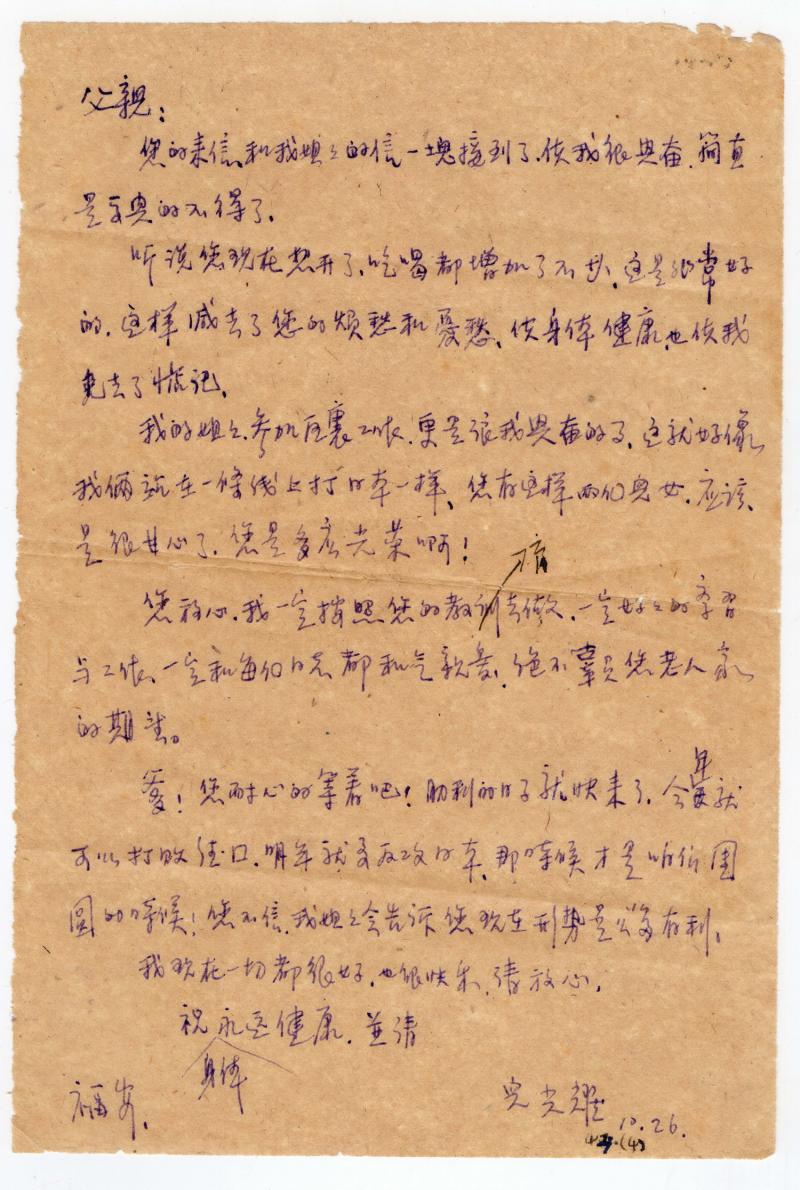 父親：
您的来信和我姐々的信一塊接到了，使我很興奋，简直
是高興的不得了。
听说您现在想开了，吃喝都增加了不少，这是非常好
的，这样减去了您的烦愁和憂愁，使身体健康，也使我
免去了惦记。
我的姐々参加区裏工作，更是让我興奋的了，这就好像
我俩站在一條线上打日本一样，您有这样两们兒女，应该
是很甘心了，您是多麽光荣啊！
您放心，我一定按照您的教训去做，一定好々的学習
与工作，一定和每们同志都和气親爱，绝不辜负您老人家
的期望。
爹！您耐心的等着吧！胜利的日子就快来了，今年就
可以打败德口，明年就要反攻日本，那時候才是咱们團
圆的時候！您不信，我姐々会告诉您现在形势是多有利。
我现在一切都很好，也很快乐，请放心。
祝永远健康，并请
身体
福安，
兒光耀
10.26.